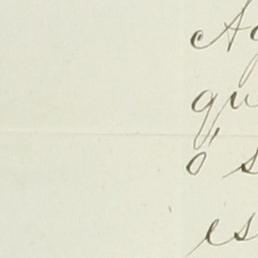 Ag
qu
ó s
es